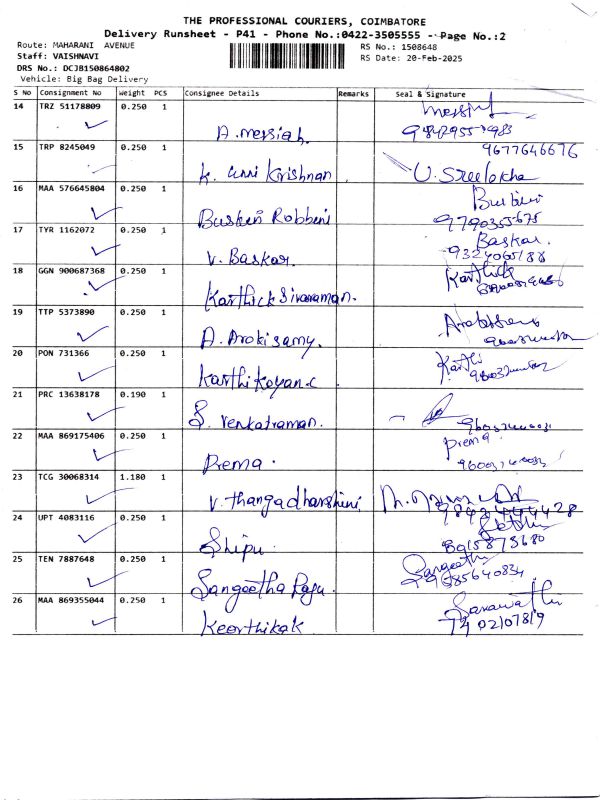 THE PROFESSIONAL COURIERS, COIMBATORE
Delivery Runsheet - P41 - Phone No.:0422-3505555 - Page No.:2
Route: MAHARANI AVENUE RS No.: 1508648
Staff: VAISHNAVI RS Date: 20-Feb-2025
DRS No.: DCJB150864802
Vehicle: Big Bag Delivery
S No Consignment No Weight PCS Consignee Details Remarks Seal & Signature
14 TRZ 51178809 0.250 1
A. messiah.
15 TRP 8245049 0.250 1 9677646676
K. unni Krishnan U. Sreelekha
16 MAA 576645804 0.250 1
Buskin Robbins 9790355675
17 TYR 1162072 0.250 1 Baskar.
V. Baskar. 9324065188
18 GGN 900687368 0.250 1 Karthick
Karthick Sivaraman.
19 TTP 5373890 0.250 1
A. Arokisamy.
20 PON 731366 0.250 1 Karthi
Karthikeyan.c
21 PRC 13638178 0.190 1
S. Venkatraman.
22 MAA 869175406 0.250 1 Prema
Prema.
23 TCG 30068314 1.180 1
V. Thangadharshini
24 UPT 4083116 0.250 1
Shipu. 8915873680
25 TEN 7887648 0.250 1 Sangeetha
Sangeetha Raju. 9585640834
26 MAA 869355044 0.250 1
Keerthikak 7402107819